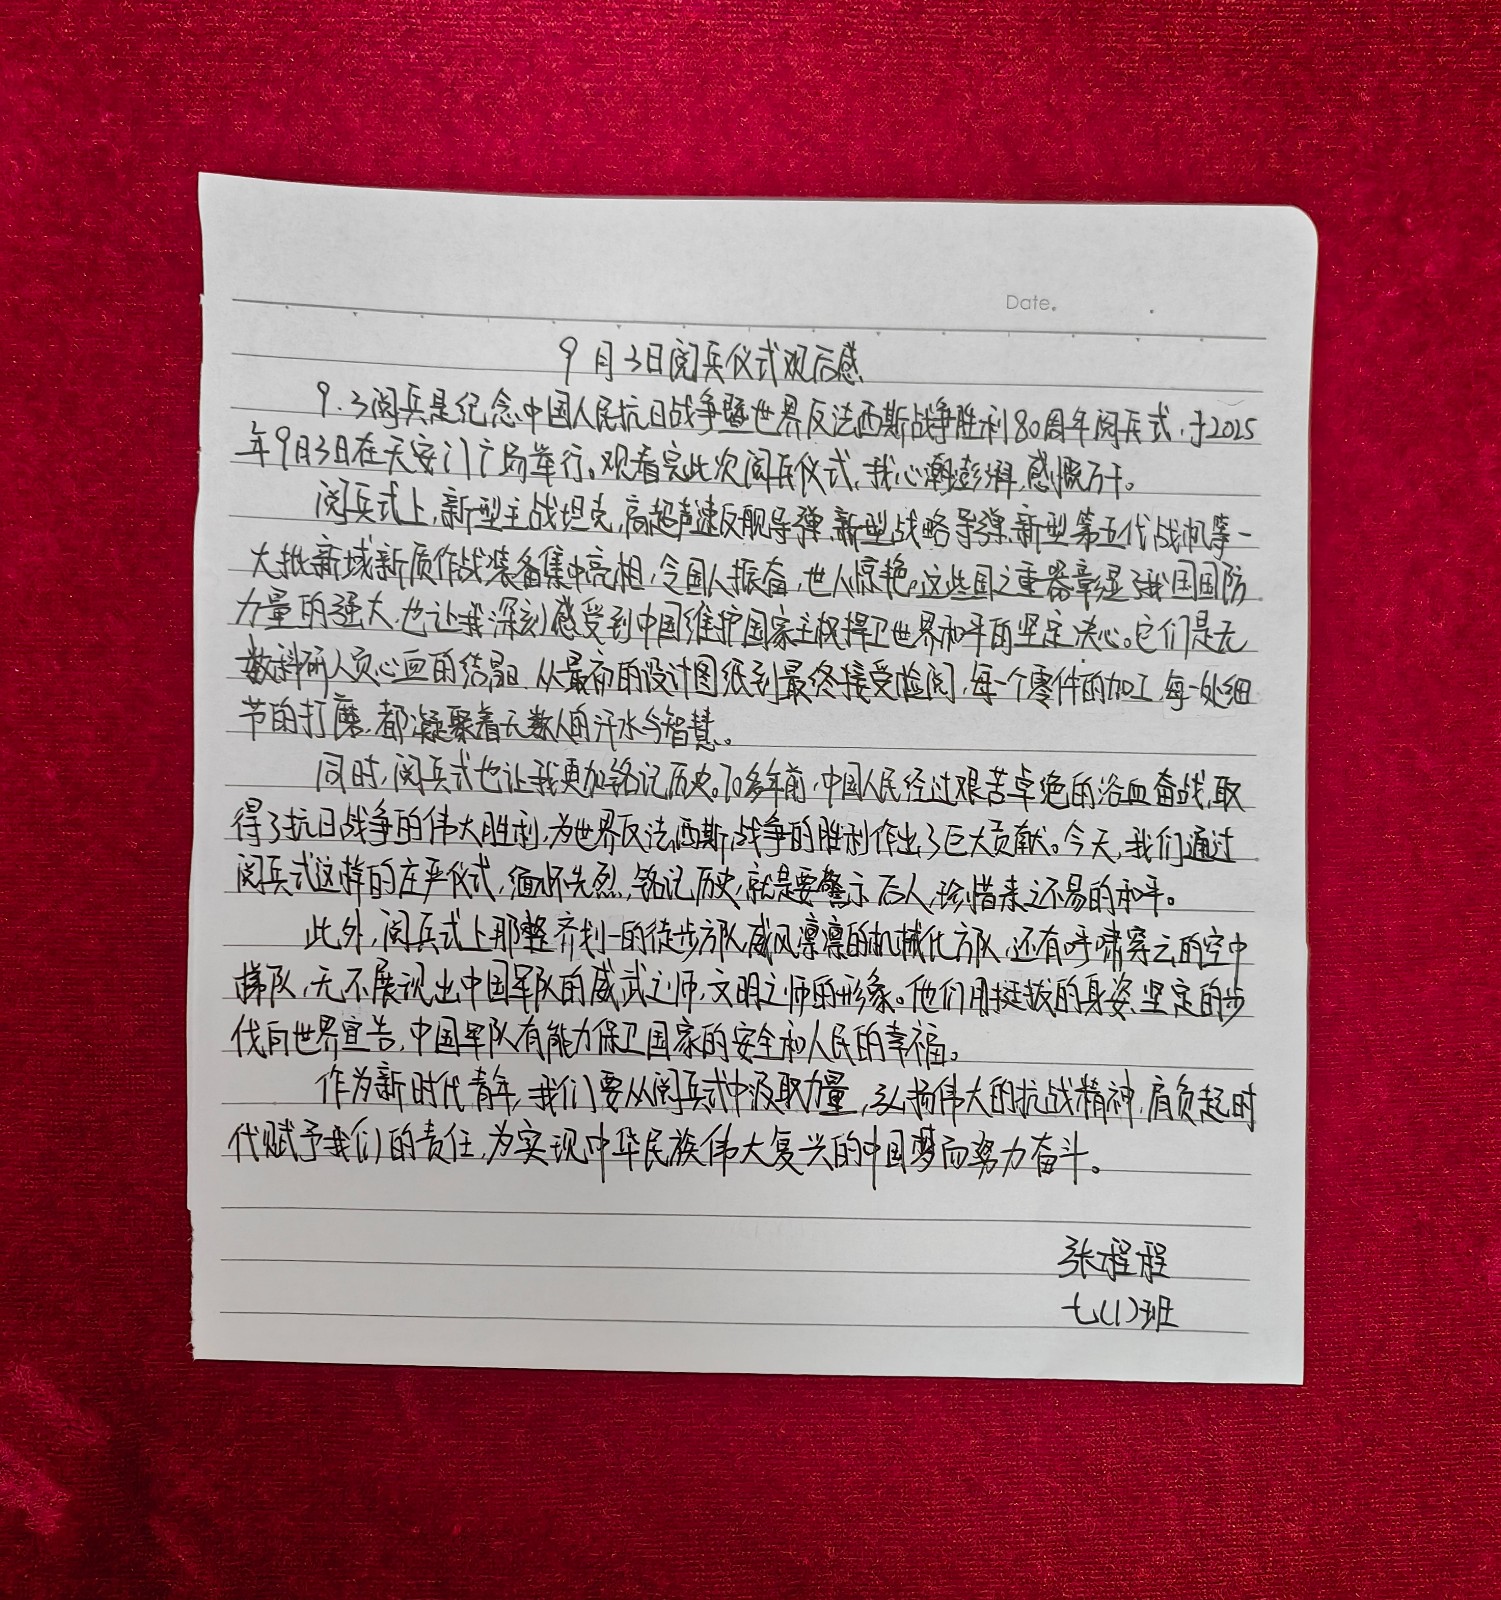 Date.
9月3日阅兵仪式观后感
9.3阅兵是纪念中国人民抗日战争暨世界反法西斯战争胜利80周年阅兵式,于2025
年9月3日在天安门广场举行。观看完此次阅兵仪式,我心潮澎湃,感慨万千。
阅兵式上,新型主战坦克,高超声速反舰导弹、新型战略导弹、新型第五代战机等一
大批新域新质作战装备集中亮相,令国人振奋,世人惊艳。这些国之重器彰显了我国国防
力量的强大,也让我深刻感受到中国维护国家主权捍卫世界和平的坚定决心。它们是无
数科研人员心血的结晶,从最初的设计图纸到最终接受检阅,每一个零件的加工,每一处细
节的打磨,都凝聚着无数人的汗水与智慧。
同时,阅兵式也让我更加铭记历史。70多年前,中国人民经过艰苦卓绝的浴血奋战,取
得了抗日战争的伟大胜利,为世界反法西斯战争的胜利作出了巨大贡献。今天,我们通过
阅兵式这样的庄严仪式,缅怀先烈,铭记历史,就是要警示后人,珍惜来之不易的和平。
此外,阅兵式上那整齐划一的徒步方队,威风凛凛的机械化方队,还有呼啸穿云的空中
梯队,无不展现出中国军队的威武之师,文明之师的形象。他们用挺拔的身姿、坚定的步
伐向世界宣告,中国军队有能力保卫国家的安全和人民的幸福。
作为新时代青年,我们要从阅兵式中汲取力量,弘扬伟大的抗战精神,肩负起时
代赋予我们的责任,为实现中华民族伟大复兴的中国梦而努力奋斗。
张程程
七(1)班